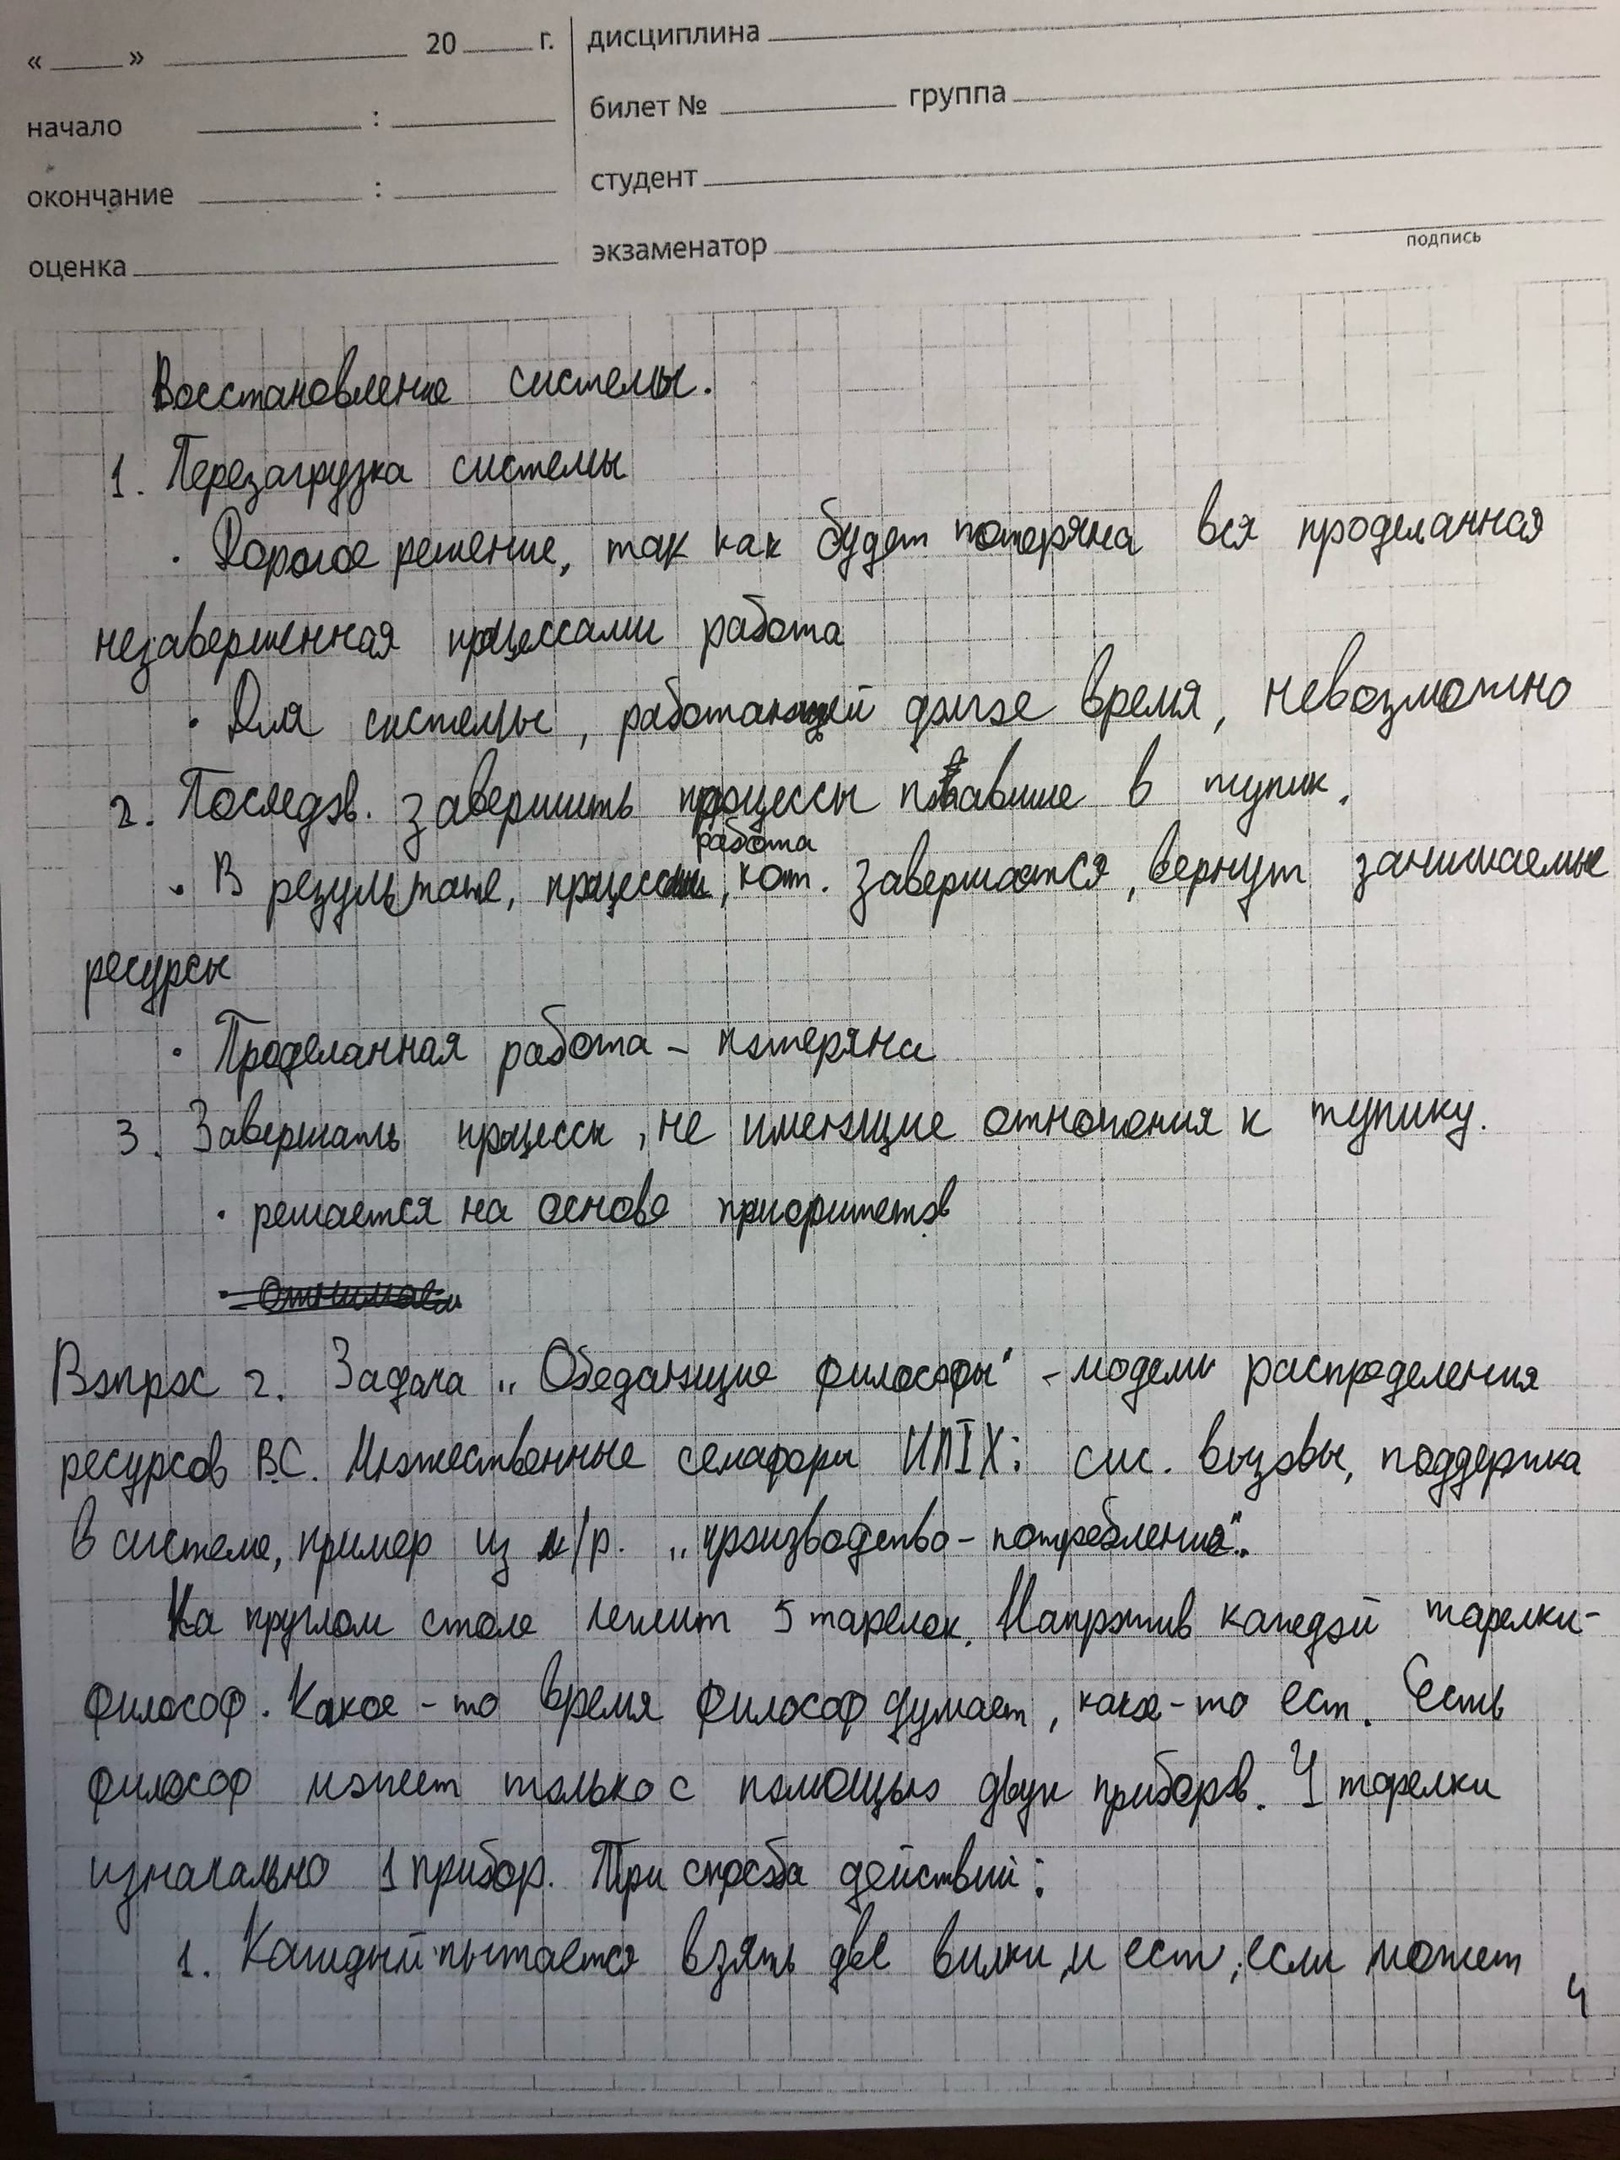 « ____ » ____________ 20 ____ г. дисциплина
начало ____ : ____ билет № ____ группа
окончание ____ : ____ студент
оценка ____ экзаменатор
подпись
Восстановление системы.
1. Перезагрузка системы
· Дорогое решение, так как будет потеряна вся проделанная
незавершенная процессами работа
· Для системы, работающей долгое время, невозможно
2. Последов. завершить процессы попавшие в тупик.
работа
· В результате, процессы, кот. завершается, вернут занимаемые
ресурсы
· Проделанная работа – потеряна
3. Завершать процессы, не имеющие отношения к тупику.
· решается на основе приоритетов
· Отнимаем
Вопрос 2. Задача „Обедающие философы“ – модели распределения
ресурсов ВС. Множественные семафоры UNIX: сис. вызовы, поддержка
в системе, пример из л/р. „производство – потребление“.
На круглом столе лежит 5 тарелок. Напротив каждой тарелки-
философ. Какое-то время философ думает, какое-то ест. Есть
философ может только с помощью двух приборов. У тарелки
изначально 1 прибор. Три способа действий:
1. Каждый пытается взять две вилки, и ест, если может
4